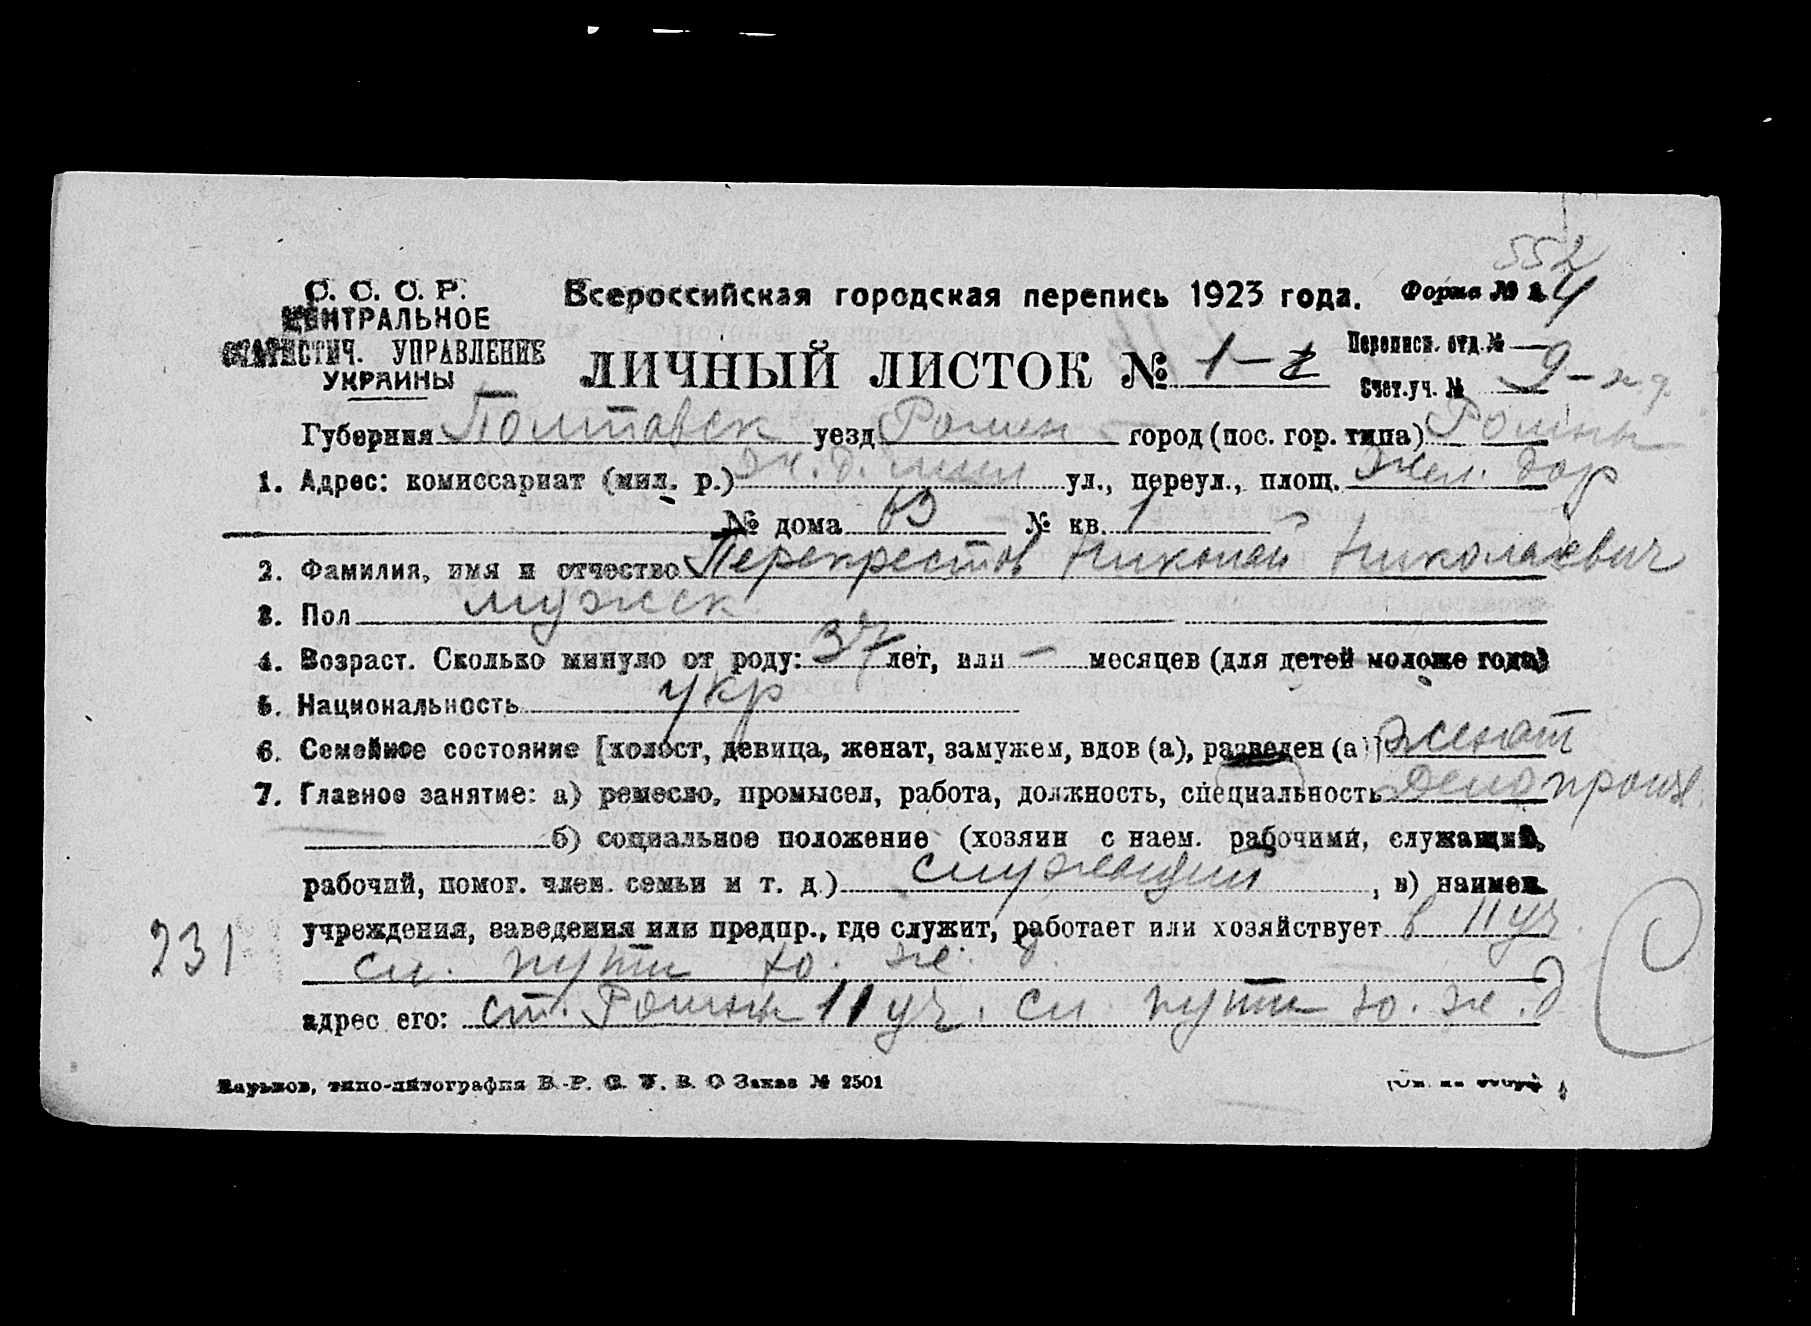 552
С. С. С. Р.
ЦЕНТРАЛЬНОЕ
СТАТИСТИЧ. УПРАВЛЕНИЕ
УКРАИНЫ
Всероссийская городская перепись 1923 года.
Форма № 4
ЛИЧНЫЙ ЛИСТОК № 1-2
Переписн. отд. № —
Счет. уч. № 9-
Губерния Полтавск уезд Ромен город (пос. гор. типа) Ромны
1. Адрес: комиссариат (мил. р.) ул., переул., площ. Жел. дор
№ дома № кв. 1
2. Фамилия, имя и отчество Перекрестов Николай Николаевич
3. Пол мужск.
4. Возраст. Сколько минуло от роду: 37 лет, или — месяцев (для детей моложе года)
5. Национальность укр
6. Семейное состояние [холост, девица, женат, замужем, вдов (а), разведен (а)] женат
7. Главное занятие: а) ремесло, промысел, работа, должность, специальность
б) социальное положение (хозяин с наем. рабочими, служащий,
рабочий, помог. член. семьи и т. д.) служащий, в) наимен.
учреждения, заведения или предпр., где служит, работает или хозяйствует в 11 уч.
231
сл. пути ю. ж. д.
адрес его: ст. Ромны 11 уч. сл пути ю. ж. д
Харьков, типо-литография В. Р. С. У. В. О Заказ № 2501